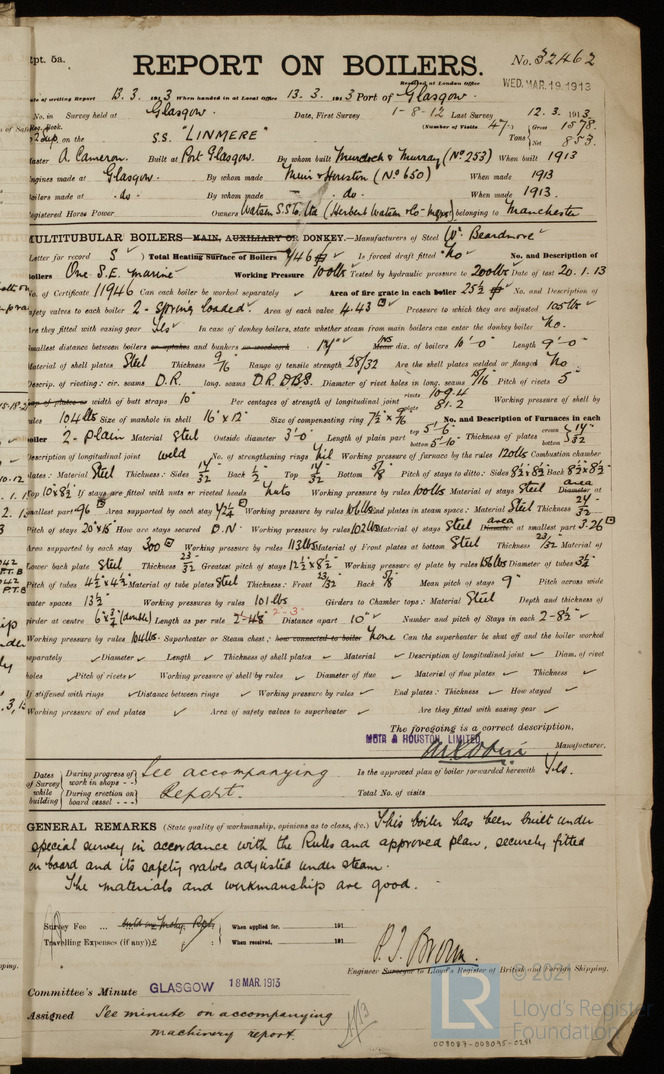 Rpt. 5a.
REPORT ON BOILERS.
No. 32462
Received at London Office
WED. MAR. 19. 1913
Date of writing Report 13.3. 1913 When handed in at Local Office 13.3. 1913 Port of Glasgow.
No. in Survey held at Glasgow. Date, First Survey 1-8-12 12.3. 1913
Reg. Book. (Number of Visits 47.) Gross 1578.
on the S.S. "LINMERE" Tons Net 853.
Master A. Cameron. Built at Port Glasgow. By whom built Murdoch & Murray (No 253) When built 1913
Engines made at Glasgow. By whom made Muir & Houston (No 650) When made 1913
Boilers made at - do - By whom made - do - When made 1913.
Registered Horse Power Owners Watson S.S. Co. Ltd (Herbert Watson & Co. Mgrs) belonging to Manchester
MULTITUBULAR BOILERS MAIN, AUXILIARY OR DONKEY.—Manufacturers of Steel W. Beardmore
Letter for record S Total Heating Surface of Boilers 746 Is forced draft fitted No. No. and Description of
Boilers One S.E. marine Working Pressure 100 lbs Tested by hydraulic pressure to 200 lbs Date of test 20.1.13
No. of Certificate 11946 Can each boiler be worked separately Area of fire grate in each boiler 25½ No. and Description of
safety valves to each boiler 2 - Spring loaded. Area of each valve 4.43 Pressure to which they are adjusted 105 lbs
Are they fitted with easing gear Yes In case of donkey boilers, state whether steam from main boilers can enter the donkey boiler No.
Smallest distance between boilers or uptakes and bunkers or woodwork 14" Mean dia. of boilers 10'-0" Length 9'-0"
Material of shell plates Steel Thickness 9/16 Range of tensile strength 28/32 Are the shell plates welded or flanged No.
Descrip. of riveting: cir. seams D.R. long. seams D.R. D.B.S. Diameter of rivet holes in long. seams 15/16 Pitch of rivets 5"
Lap of plates or width of butt straps 10" Per centages of strength of longitudinal joint rivets 109.4 plate 81.2 Working pressure of shell by
rules 104 lbs Size of manhole in shell 16" x 12" Size of compensating ring 7½ x 9/16 No. and Description of Furnaces in each
boiler 2 - plain Material Steel Outside diameter 3'-0" Length of plain part top 5'-6" bottom 5'-10" Thickness of plates crown 17/32 bottom
Description of longitudinal joint weld No. of strengthening rings Nil Working pressure of furnace by the rules 120 lbs Combustion chamber
plates: Material Steel Thickness: Sides 17/32 Back ½ Top 17/32 Bottom 5/8 Pitch of stays to ditto: Sides 8½ x 8½ Back 8½ x 8½
Top 10 x 8½ If stays are fitted with nuts or riveted heads nuts Working pressure by rules 100 lbs Material of stays Steel area Diameter at
smallest part .96 Area supported by each stay 72¼ Working pressure by rules 106 lbs End plates in steam space: Material Steel Thickness 24/32
Pitch of stays 20" x 15" How are stays secured D.N. Working pressure by rules 102 lbs Material of stays Steel area Diameter at smallest part 3.26
Area supported by each stay 300 Working pressure by rules 113 lbs Material of Front plates at bottom Steel Thickness 23/32 Material of
Lower back plate Steel Thickness 23/32 Greatest pitch of stays 12½ x 8½ Working pressure of plate by rules 158 lbs Diameter of tubes 3¼
Pitch of tubes 4½ x 4½ Material of tube plates Steel Thickness: Front 23/32 Back 5/8 Mean pitch of stays 9" Pitch across wide
water spaces 13½" Working pressures by rules 101 lbs Girders to Chamber tops: Material Steel Depth and thickness of
girder at centre 6 x ¾ (double) Length as per rule 2'-4⅝ 2'-3" Distance apart 10" Number and pitch of Stays in each 2 - 8½"
Working pressure by rules 104 lbs. Superheater or Steam chest; how connected to boiler None Can the superheater be shut off and the boiler worked
separately Diameter Length Thickness of shell plates Material Description of longitudinal joint Diam. of rivet
holes Pitch of rivets Working pressure of shell by rules Diameter of flue Material of flue plates Thickness
If stiffened with rings Distance between rings Working pressure by rules End plates: Thickness How stayed
Working pressure of end plates Area of safety valves to superheater Are they fitted with easing gear
The foregoing is a correct description,
MUIR & HOUSTON, LIMITED.
Manufacturer.
Dates of Survey while building During progress of work in shops - - During erection on board vessel - - -
See accompanying
Report.
Is the approved plan of boiler forwarded herewith Yes.
Total No. of visits
GENERAL REMARKS (State quality of workmanship, opinions as to class, &c.) This boiler has been built under
special survey in accordance with the Rules and approved plan, securely fitted
on board and its safety valves adjusted under steam.
The materials and workmanship are good.
Survey Fee ... When applied for, 191
Travelling Expenses (if any) £ When received, 191
P. J. Brown.
Engineer Surveyor to Lloyd's Register of British and Foreign Shipping.
Committee's Minute GLASGOW 18 MAR. 1913
Assigned See minute on accompanying
machinery report.
© 2021
LR
Lloyd's Register
Foundation
008087-008095-0281